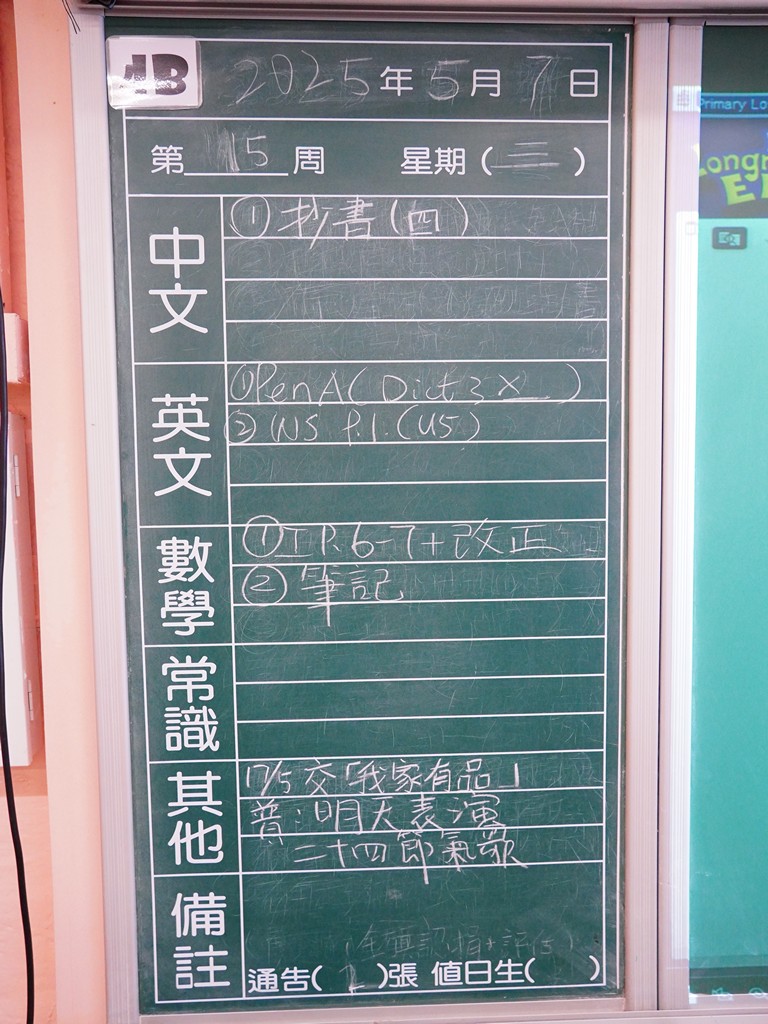 4B
2025年5月7日
第15周 星期(三)
中文
①抄書(四)
英文
①Pen A( Dict 3 X )
② WS P.1.(U5)
數學
①工 P.6-7+改正
②筆記
常識
其他
17/5交「我家有品」
普:明天表演
二十四節氣歌
備註
通告( 2 )張 值日生( )
Primary Lo
Longm